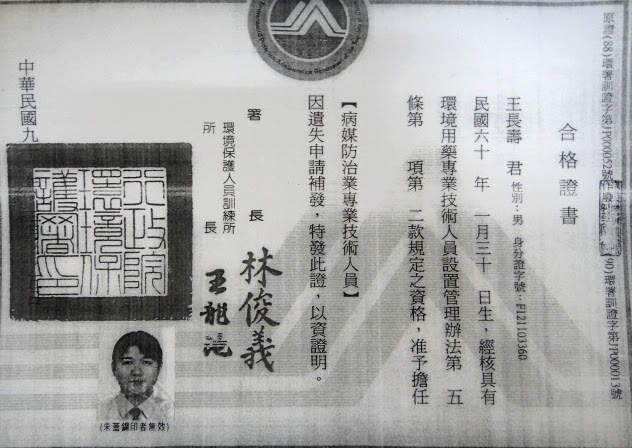 合格證書
原證(88)環署訓證字第JP000525號
(90)環署訓證字第JP000013號
王長壽 君 性別：男 身分證字號：F121103360
民國六十 年 一月三十 日生，經核具有
環境用藥專業技術人員設置管理辦法第 五
條第 項第 二款規定之資格，准予擔任
【病媒防治業專業技術人員】
因遺失申請補發，特發此證，以資證明。
署長 林俊義
環境保護人員訓練所
所長
行政院環境保護署印
中華民國九
(未蓋鋼印者無效)